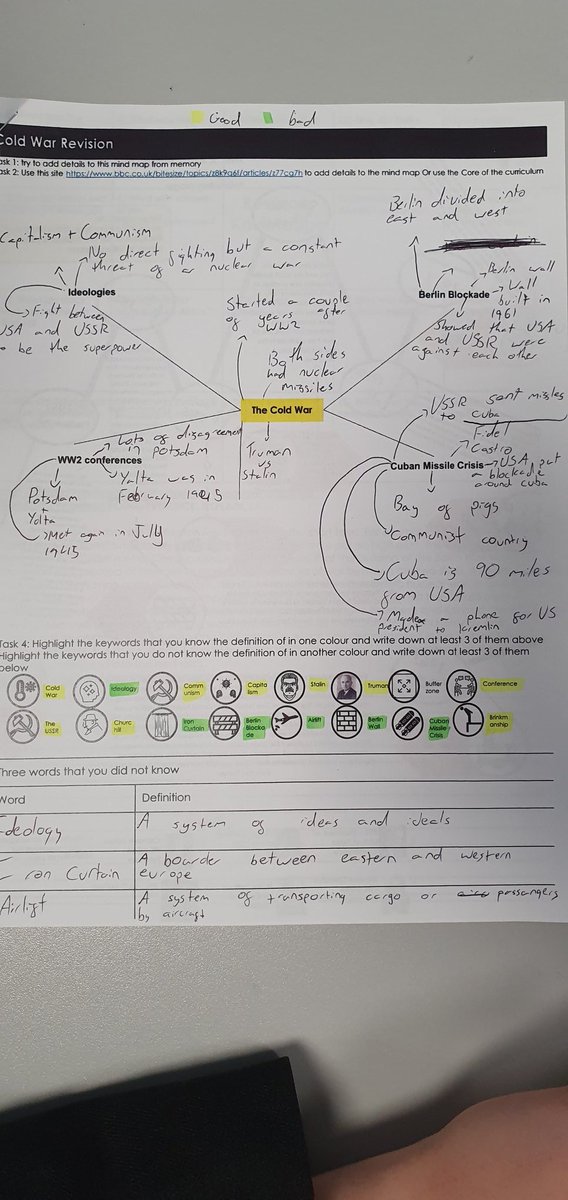 Good bad
Cold War Revision
ask 1: try to add details to this mind map from memory
ask 2: Use this site https://www.bbc.co.uk/bitesize/topics/z8k9q6f/articles/z77cg7h to add details to the mind map Or use the Core of the curriculum
Berlin divided into
east and west
Capitalism + Communism
No direct fighting but a constant
threat of a nuclear war
Ideologies
Fight between
USA and USSR
to be the superpower
Started a couple
of years after
WW2
Both sides
had nuclear
missiles
Berlin Blockade
Berlin wall
Wall
built in
1961
Showed that USA
and USSR were
against each other
The Cold War
Truman
vs
Stalin
WW2 conferences
Lots of disagreement
in potsdam
Yalta was in
February 1945
Potsdam
+
Yalta
Met again in July
1945
Cuban Missile Crisis
USSR sent missles
to cuba
Fidel
Castro
USA put
a blockade
around cuba
Bay of pigs
Communist country
Cuba is 90 miles
from USA
Made a phone for US
president to kremlin
Task 4: Highlight the keywords that you know the definition of in one colour and write down at least 3 of them above
Highlight the keywords that you do not know the definition of in another colour and write down at least 3 of them
below
Cold War
Ideology
Comm unism
Capita lism
Stalin
Truman
Buffer zone
Conference
The USSR
Churc hill
Iron Curtain
Berlin Blocka de
Airlift
Berlin Wall
Cuban Missile Crisis
Brinkm anship
Three words that you did not know
Word Definition
Ideology A system of ideas and ideals
Iron Curtain A boarder between eastern and western
europe
Airlift A system of transporting cargo or passangers
by aircraft